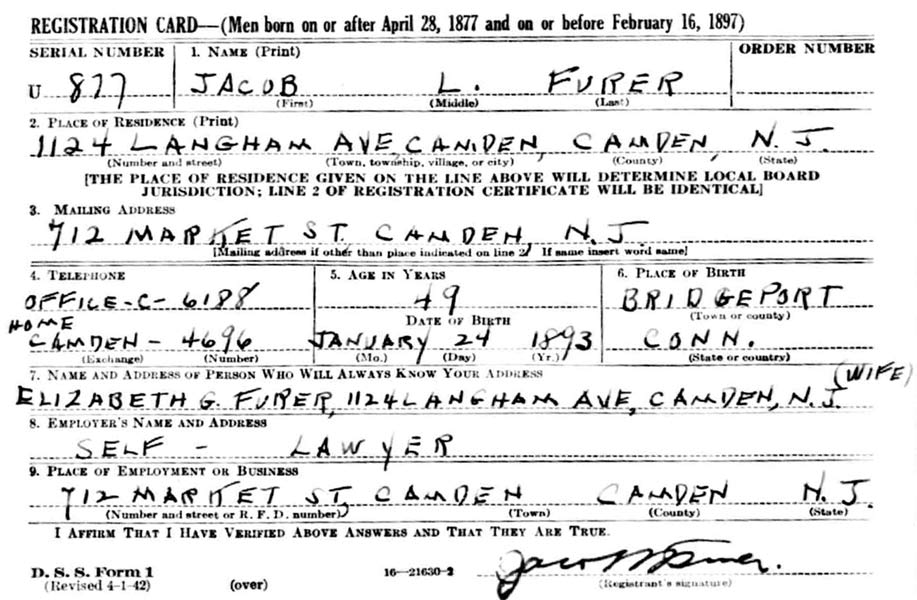 REGISTRATION CARD—(Men born on or after April 28, 1877 and on or before February 16, 1897)
SERIAL NUMBER 1. NAME (Print) ORDER NUMBER
U 877 JACOB L. FURER
(First) (Middle) (Last)
2. PLACE OF RESIDENCE (Print)
1124 LANGHAM AVE, CAMDEN, CAMDEN, N. J.
(Number and street) (Town, township, village, or city) (County) (State)
[THE PLACE OF RESIDENCE GIVEN ON THE LINE ABOVE WILL DETERMINE LOCAL BOARD
JURISDICTION; LINE 2 OF REGISTRATION CERTIFICATE WILL BE IDENTICAL]
3. MAILING ADDRESS
712 MARKET ST. CAMDEN, N. J.
[Mailing address if other than place indicated on line 2. If same insert word same]
4. TELEPHONE 5. AGE IN YEARS 6. PLACE OF BIRTH
OFFICE-C-6188 49 BRIDGEPORT
HOME DATE OF BIRTH (Town or county)
CAMDEN - 4696 JANUARY 24 1893 CONN.
(Exchange) (Number) (Mo.) (Day) (Yr.) (State or country)
7. NAME AND ADDRESS OF PERSON WHO WILL ALWAYS KNOW YOUR ADDRESS (WIFE)
ELIZABETH G. FURER, 1124 LANGHAM AVE, CAMDEN, N. J.
8. EMPLOYER'S NAME AND ADDRESS
SELF - LAWYER
9. PLACE OF EMPLOYMENT OR BUSINESS
712 MARKET ST, CAMDEN CAMDEN N. J.
(Number and street or R. F. D. number) (Town) (County) (State)
I AFFIRM THAT I HAVE VERIFIED ABOVE ANSWERS AND THAT THEY ARE TRUE.
D. S. S. Form 1
(Revised 4-1-42) (over) 16—21630-2 (Registrant's signature)